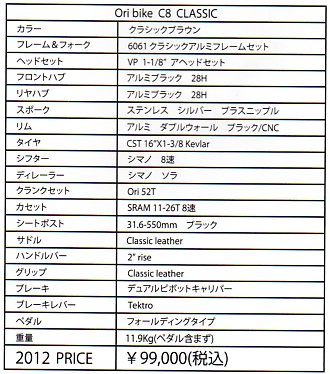 Ori bike C8 CLASSIC
カラー クラシックブラウン
フレーム＆フォーク 6061クラシックアルミフレームセット
ヘッドセット VP 1-1/8" アヘッドセット
フロントハブ アルミブラック 28H
リヤハブ アルミブラック 28H
スポーク ステンレス シルバー ブラスニップル
リム アルミ ダブルウォール ブラック/CNC
タイヤ CST 16"X1-3/8 Kevlar
シフター シマノ 8速
ディレーラー シマノ ソラ
クランクセット Ori 52T
カセット SRAM 11-26T 8速
シートポスト 31.6-550mm ブラック
サドル Classic leather
ハンドルバー 2" rise
グリップ Classic leather
ブレーキ デュアルピボットキャリパー
ブレーキレバー Tektro
ペダル フォールディングタイプ
重量 11.9Kg(ペダル含まず)
2012 PRICE ￥99,000(税込)